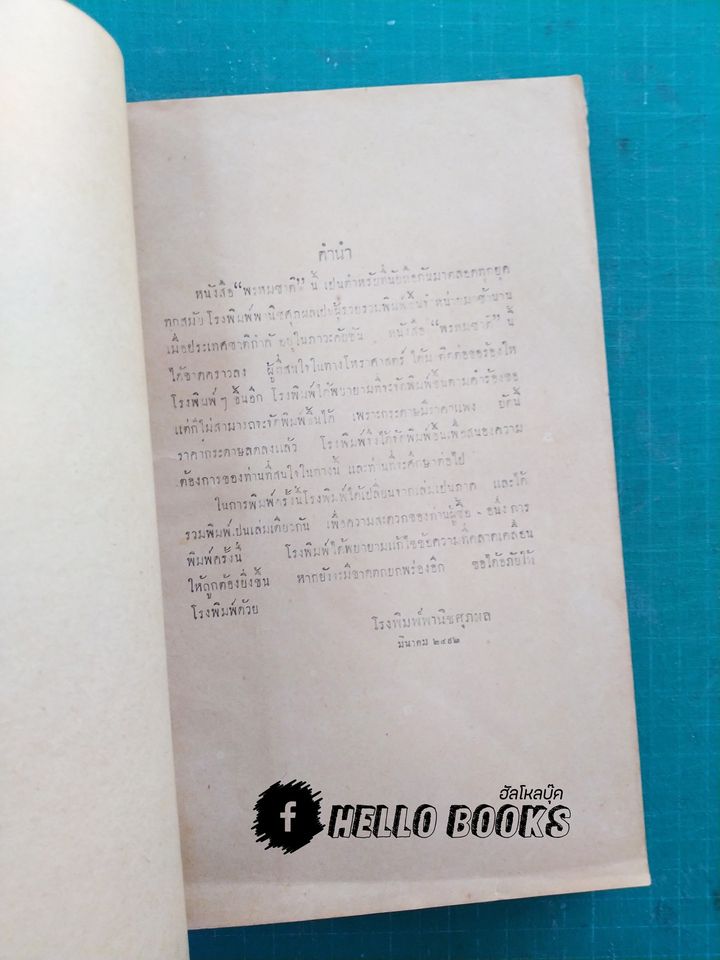 คำนำ
หนังสือ “พรหมชาติ” นี้ เปนตำหรับที่นับถือกันมาตลอดทุกยุค
ทุกสมัย โรงพิมพ์พานิชศุภผลเปนผู้รวบรวมพิมพ์ขึ้นจำหน่ายมาช้านาน
เมื่อประเทศชาติกำลังอยู่ในภาวะคับขัน หนังสือ “พรหมชาติ” นี้
ได้ขาดคราวลง ผู้ที่สนใจในทางโหราศาสตร์ ได้มาติดต่อขอร้องให้
โรงพิมพ์ ๆ ขึ้นอีก โรงพิมพ์ได้พยายามที่จะจัดพิมพ์ขึ้นตามคำร้องขอ
แต่ก็ไม่สามารถจะจัดพิมพ์ขึ้นได้ เพราะกระดาษมีราคาแพง บัดนี้
ราคากระดาษลดลงแล้ว โรงพิมพ์จึงได้จัดพิมพ์ขึ้นเพื่อสนองความ
ต้องการของท่านที่สนใจในทางนี้ และท่านที่จะศึกษาต่อไป
ในการพิมพ์ครั้งนี้โรงพิมพ์ได้เปลี่ยนจากเล่มเปนภาค และได้
รวมพิมพ์เปนเล่มเดียวกัน เพื่อความสะดวกของท่านผู้ซื้อ - อนึ่ง การ
พิมพ์ครั้งนี้ โรงพิมพ์ได้พยายามแก้ไขข้อความที่คลาดเคลื่อน
ให้ถูกต้องยิ่งขึ้น หากยังจะมีขาดตกบกพร่องอีก ขอได้อภัยให้
โรงพิมพ์ด้วย
โรงพิมพ์พานิชศุภผล
มีนาคม ๒๔๙๒
ฮัลโหลบุ๊ค
f HELLO BOOKS